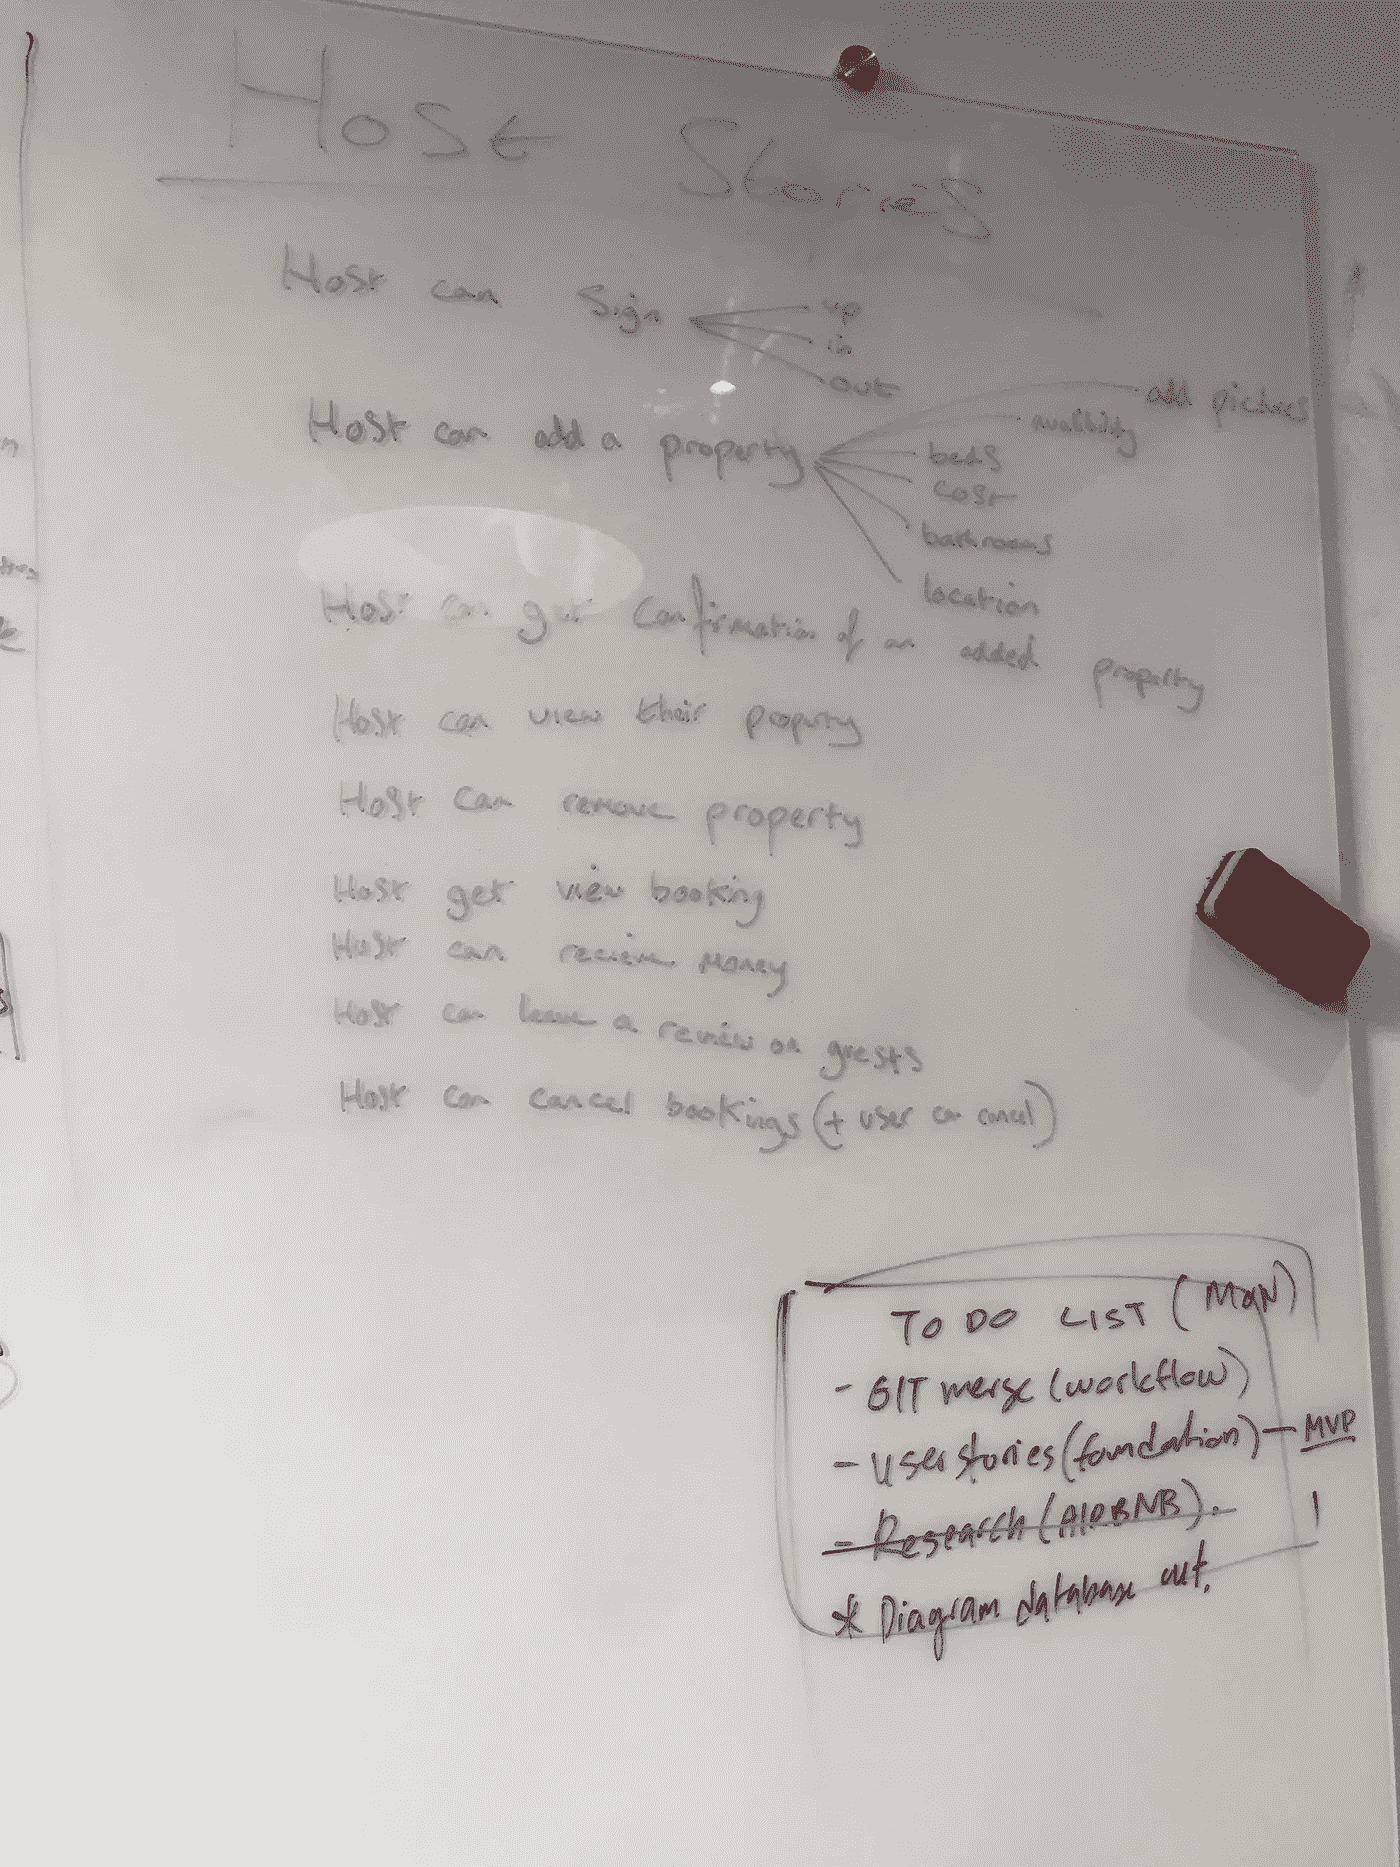 Host Stories
Host can Sign
up
in
out
Host can add a property
add pictures
avalibility
beds
cost
bathrooms
location
Host can get confirmation of an added property
Host can view their property
Host can remove property
Host get view booking
Host can recieve money
Host can leave a review on guests
Host can cancel bookings (+ user can cancel)
TO DO LIST (MON)
- GIT merge (workflow)
- User stories (foundation) — MVP
- Research (AIRBNB).
* Diagram database out.